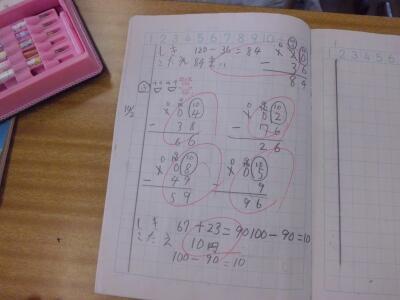 1 2 3 4 5 6 7 8 9 10
しき 120-36=84
こたえ 84
- 36
84
③
104
- 38
66
102
- 76
26
108
- 49
59
105
- 9
96
しき 67+23=90 100-90=10
こたえ 10円
100-90=10
1 2 3 4 5